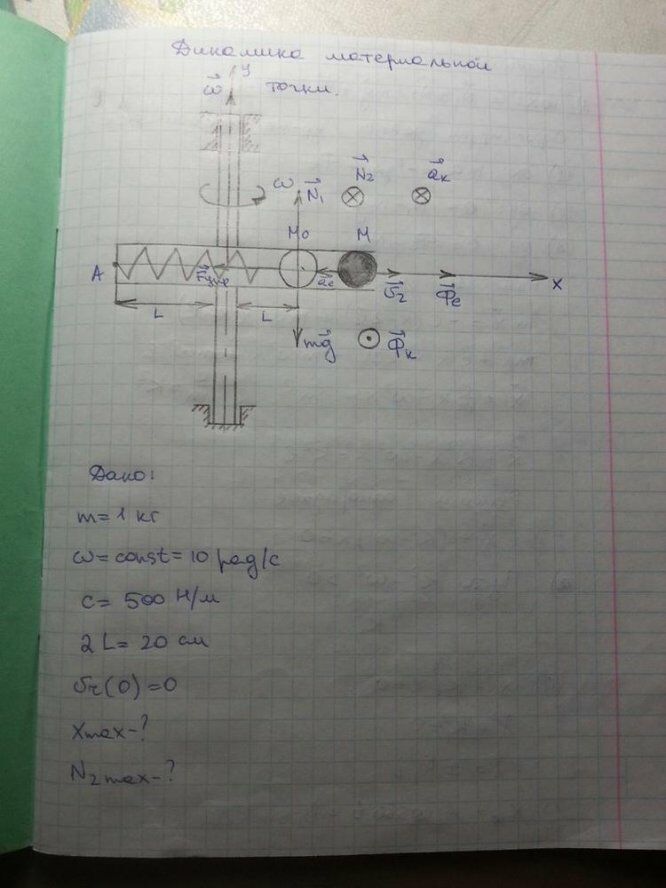 Динамика материальной
точки.
y
ω
ω
N₁
N₂
aк
M₀
M
A
Fупр
ae
υr
Фe
x
L
L
mg
Фк
Дано:
m=1 кг
ω=const=10 рад/с
c= 500 Н/м
2L= 20 см
υr(0)=0
Xmax-?
N₂max-?